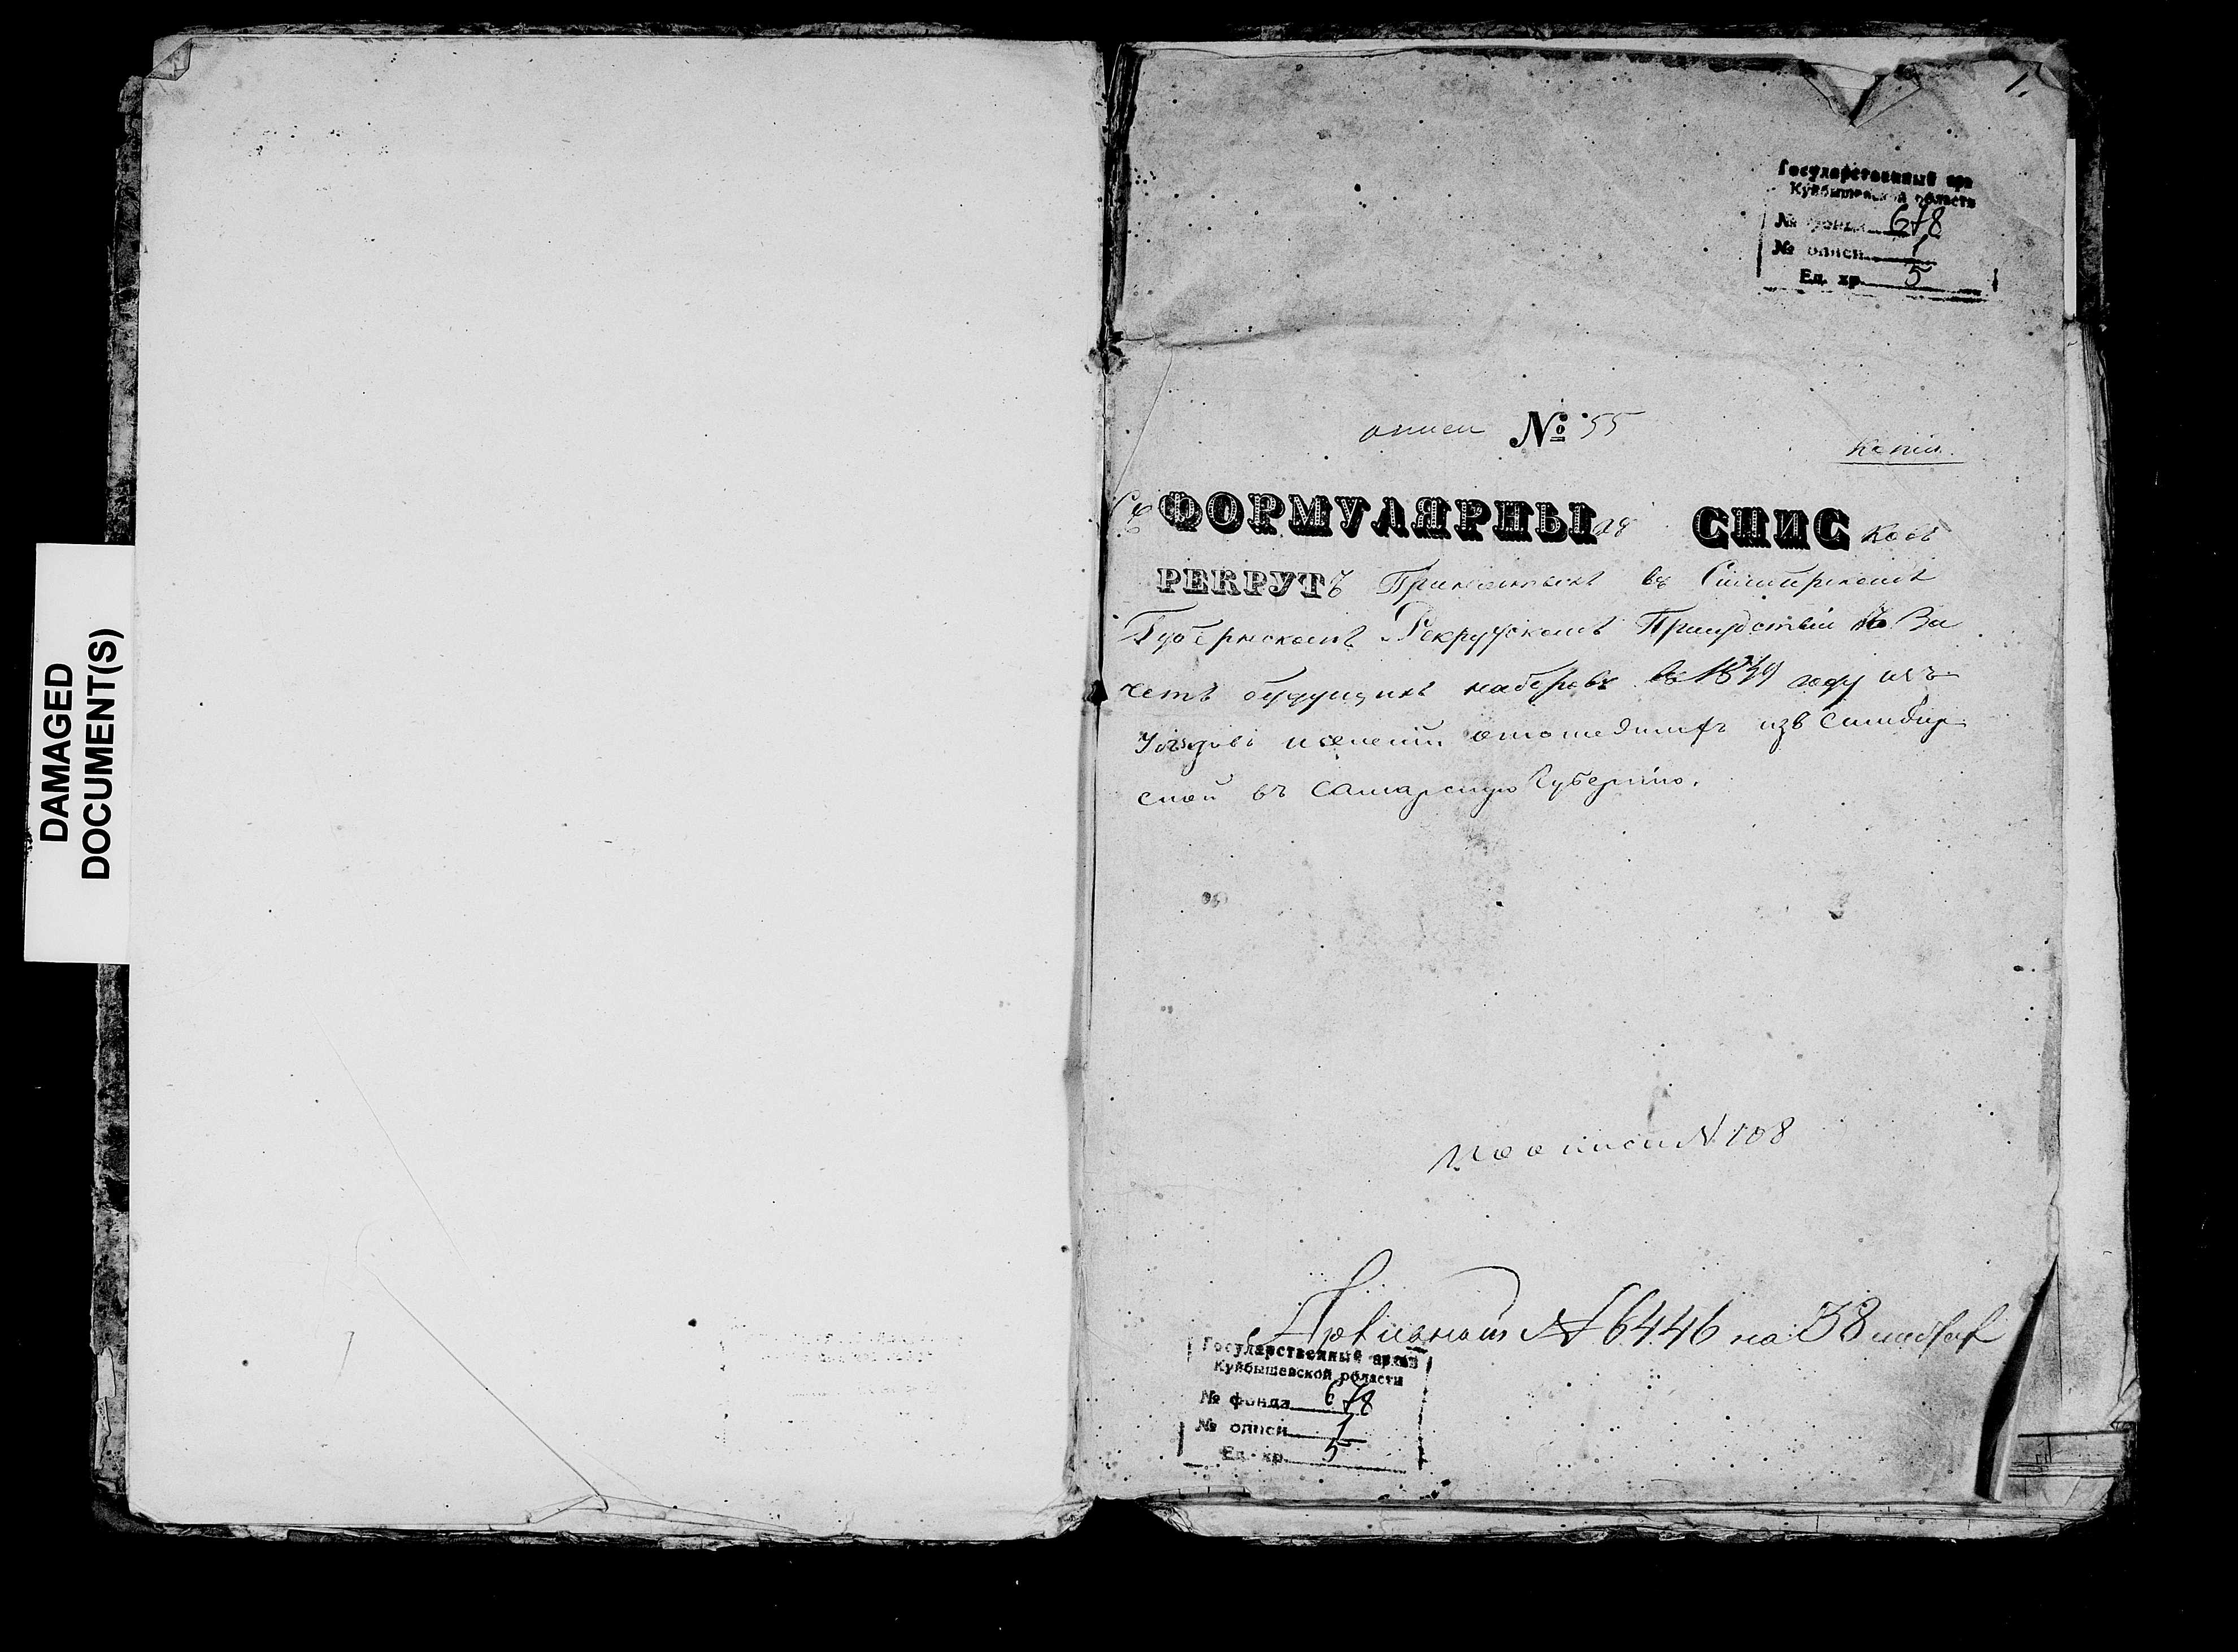 DAMAGED
DOCUMENT(S)
1.
Государственный арх
Куйбышевской области
№ фонда 678
№ описи 1
Ед. хр. 5
описи № 55
Копіи.
Съ ФОРМУЛЯРНЫ СПИСковъ
РЕКРУТЪ Принятыхъ въ Симбирскомъ
Губернскомъ Рекрутскомъ Присутствіи въ За
четъ будущихъ наборовъ въ 1849 году изъ
Уѣздовъ отошедшихъ изъ Симбир
ской въ Самарскую Губернію.
По описи № 108
Архивной № 6446 на 38 листах
Государственный архив
Куйбышевской области
№ фонда 678
№ описи 1
Ед. хр. 5